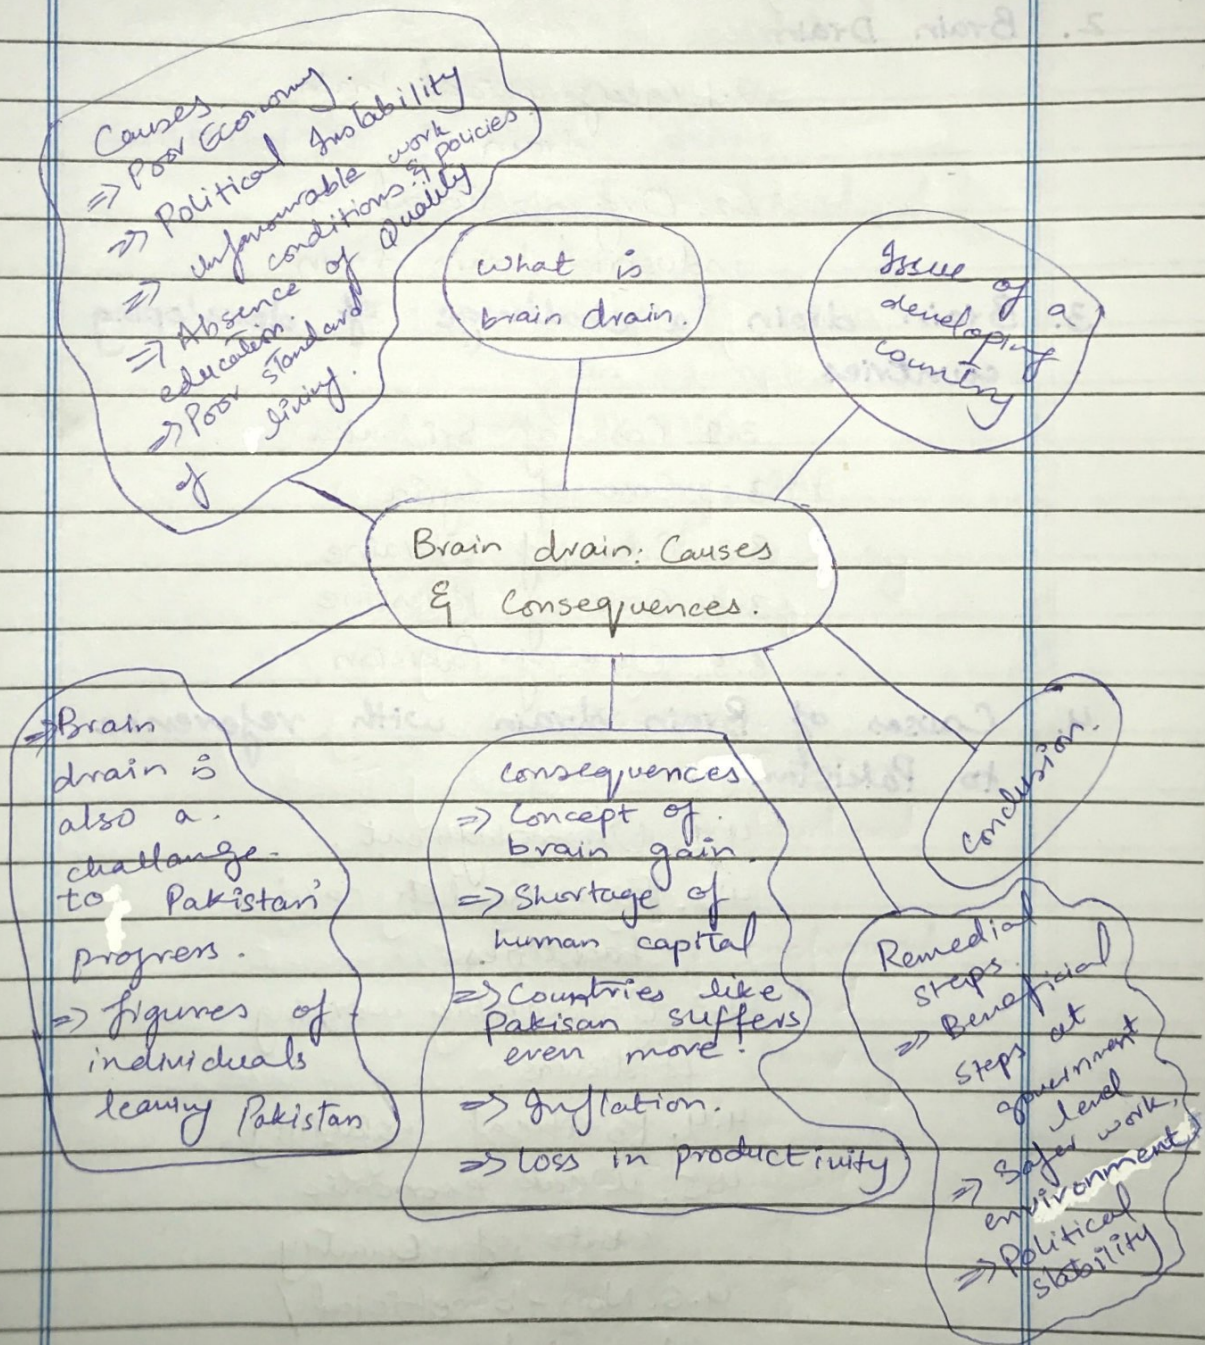 Causes.
⇒ Poor Economy.
⇒ Political Instability
⇒ Unfavourable work
conditions & policies.
⇒ Absence of Quality
education.
⇒ Poor standard
of living.
What is
brain drain.
Issue of a
developing
country
Brain drain: Causes
& Consequences.
⇒ Brain
drain is
also a.
challange.
to Pakistan'
progress.
⇒ figures of
individuals
leaving Pakistan
consequences
⇒ Concept of.
brain gain.
⇒ Shortage of
human capital
⇒ Countries like
Pakisan suffers
even more.
⇒ Inflation.
⇒ Loss in productivity
Conclusion.
Remedial
steps.
⇒ Beneficial
steps at
government
level
⇒ Safer work,
environment,
⇒ Political
stability